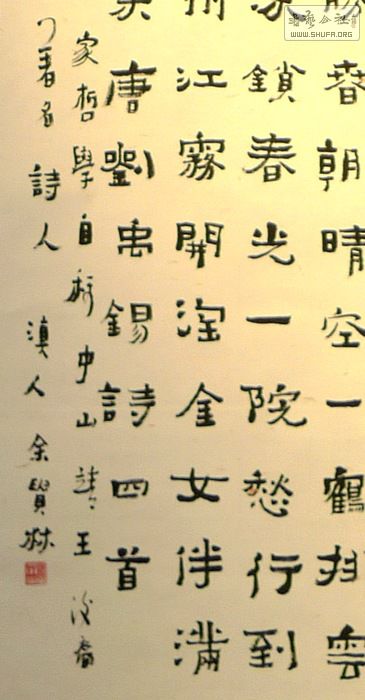 書藝公社
WWW.SHUFA.ORG
勝春朝晴空一鶴排雲
深鎖春光一院愁行到
州江霧開淘金女伴滿
唐劉禹錫詩四首
家哲學自稱中山靖王後裔
著名詩人 滇人 余賢林